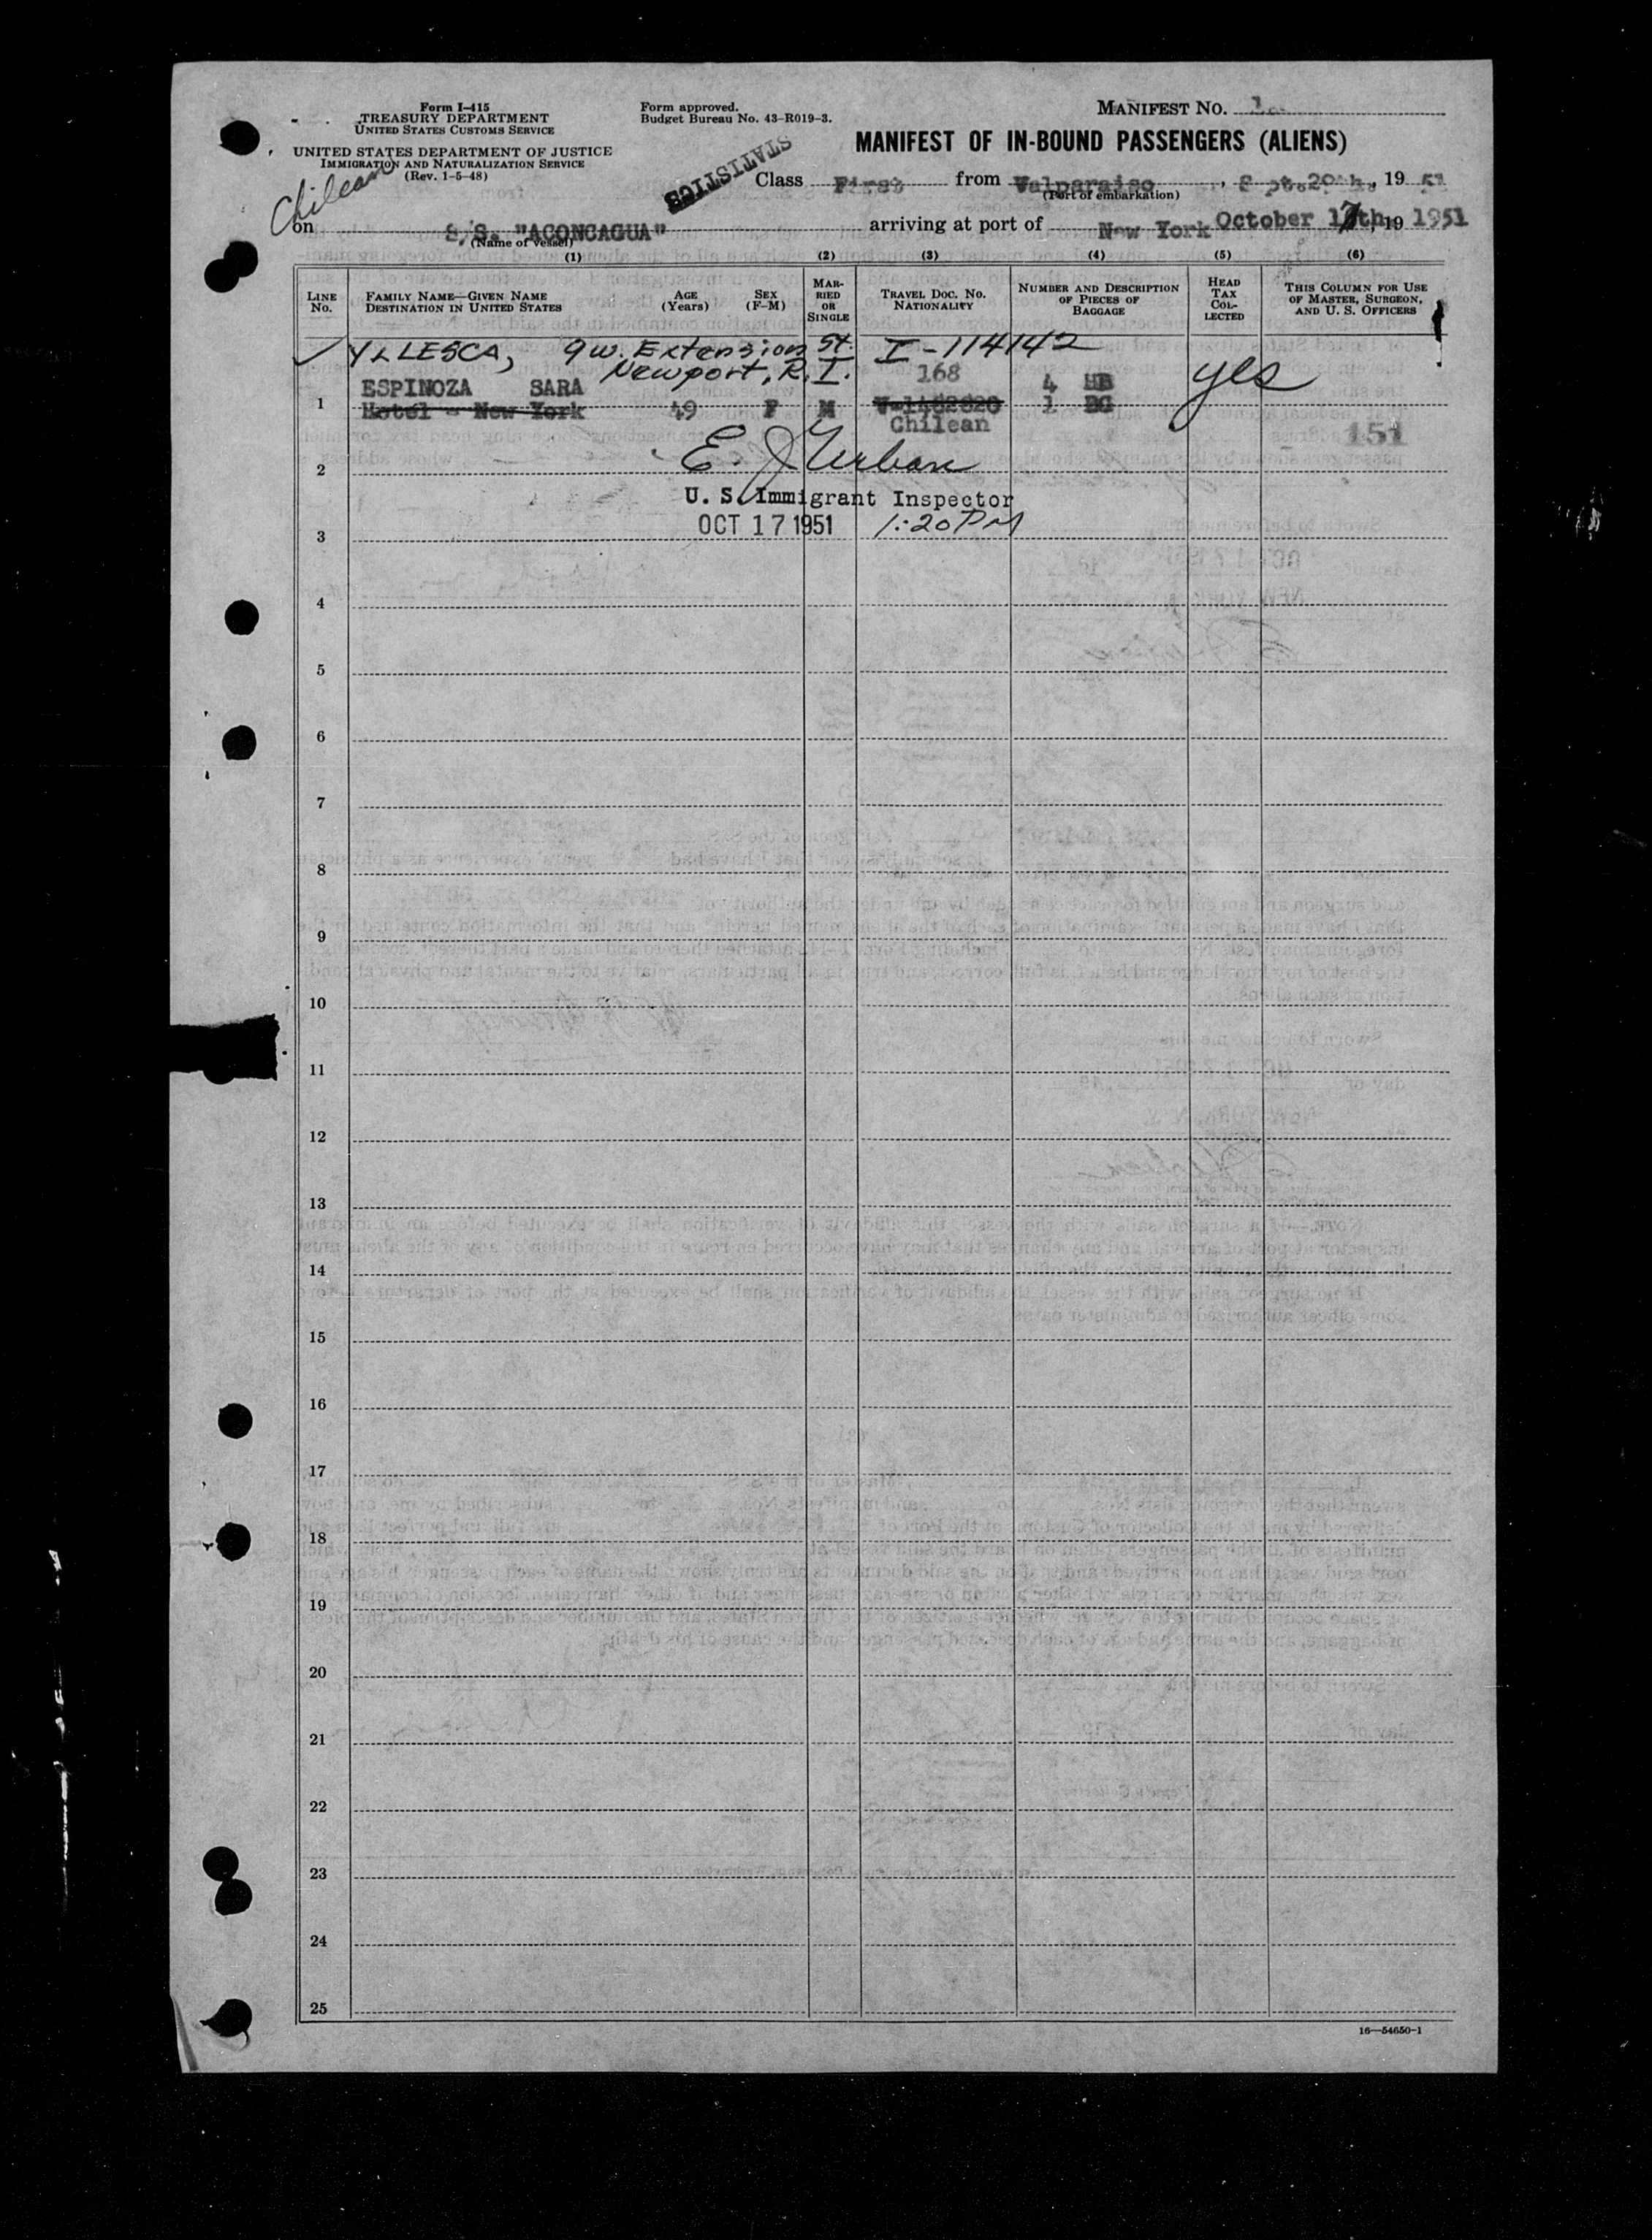 Form I-415
TREASURY DEPARTMENT
UNITED STATES CUSTOMS SERVICE
UNITED STATES DEPARTMENT OF JUSTICE
IMMIGRATION AND NATURALIZATION SERVICE
(Rev. 1-5-48)
Form approved.
Budget Bureau No. 43-R019-3.
MANIFEST NO.
MANIFEST OF IN-BOUND PASSENGERS (ALIENS)
STATISTICS
Chilean
Class First from Valparaiso, Sept. 20th., 19 51
(Port of embarkation)
on S.S. "ACONCAGUA" arriving at port of New York October 17th, 19 1951
(Name of vessel)
(1) (2) (3) (4) (5) (6)
LINE No.
FAMILY NAME—GIVEN NAME DESTINATION IN UNITED STATES
AGE (Years)
SEX (F-M)
MARRIED OR SINGLE
TRAVEL DOC. No. NATIONALITY
NUMBER AND DESCRIPTION OF PIECES OF BAGGAGE
HEAD TAX COLLECTED
THIS COLUMN FOR USE OF MASTER, SURGEON, AND U. S. OFFICERS
YLLESCA, 9 W. Extension St. I-114142
Newport, R.I. 168 yes
ESPINOZA SARA 4 HB
1 Hotel - New York 49 F M 1 BG
Chilean
151
E. J. Urban
2
U. S. Immigrant Inspector
OCT 17 1951 1:20 PM
3
4
5
6
7
8
9
10
11
12
13
14
15
16
17
18
19
20
21
22
23
24
25
16—54650-1